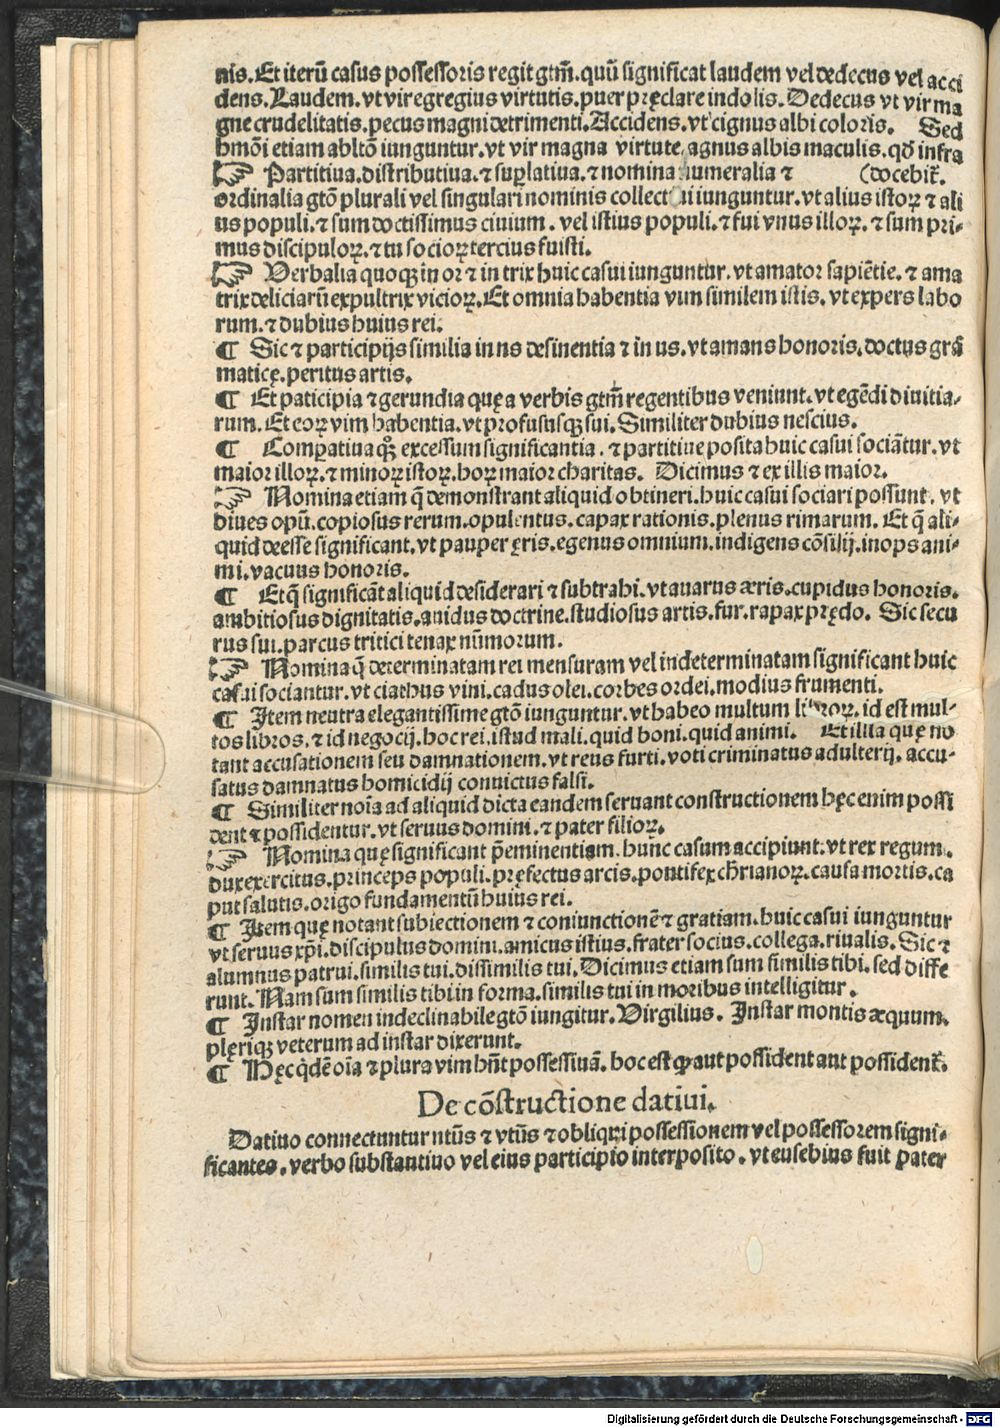 nis. Et iterū casus possessoris regit gtm̄. quū significat laudem vel dedecus vel acci
dens. Laudem. vt vir egregius virtutis. puer pręclare indolis. Dedecus vt vir ma
gne crudelitatis. pecus magni detrimenti. Accidens. vt cignus albi coloris. Sed
hmōi etiam abltō iunguntur. vt vir magna virtute agnus albis maculis. qđ infra
☞ Partitiua. distributiua. ⁊ suꝑlatiua. ⁊ nomina numeralia ⁊ (docebit̄.
ordinalia gtō plurali vel singulari nominis collectiui iunguntur. vt alius istoꝝ ⁊ ali
us populi. ⁊ sum doctissimus ciuium. vel istius populi. ⁊ fui vnus illoꝝ. ⁊ sum pri-
mus discipuloꝝ. ⁊ tu socioꝝ tercius fuisti.
☞ Verbalia quoqꝫ in or ⁊ in trix huic casui iunguntur. vt amator sapiētie. ⁊ ama
trix deliciarū expultrix vicioꝝ. Et omnia habentia vim similem istis. vt expers labo
rum. ⁊ dubius huius rei.
¶ Sic ⁊ participijs similia in ns desinentia ⁊ in us. vt amans honoris. doctus grā
maticę. peritus artis.
¶ Et paticipia ⁊ gerundia quę a verbis gtm̄ regentibus veniunt. vt egēdi diuitia-
rum. Et eoꝝ vim habentia. vt profususqꝫ sui. Similiter dubius nescius.
¶ Comꝑatiua qꝫ excessum significantia. ⁊ partitiue posita huic casui sociātur. vt
maior illoꝝ. ⁊ minoꝝ istoꝝ. hoꝝ maior charitas. Dicimus ⁊ ex illis maior.
☞ Nomina etiam q̄ demonstrant aliquid obtineri. huic casui sociari possunt. vt
diues opū. copiosus rerum. opulentus. capax rationis. plenus rimarum. Et q̄ ali-
quid deesse significant. vt pauper ęris. egenus omnium. indigens cōsilij. inops ani-
mi. vacuus honoris.
¶ Et q̄ significāt aliquid desiderari ⁊ subtrahi. vt auarus æris. cupidus honoris.
ambitiosus dignitatis. auidus doctrine. studiosus artis. fur. rapax prędo. Sic secu
rus sui. parcus tritici tenax nūmorum.
☞ Nomina q̄ determinatam rei mensuram vel indeterminatam significant huic
casui sociantur. vt ciathus vini. cadus olei. corbes ordei. modius frumenti.
¶ Item neutra elegantissime gtō iunguntur. vt habeo multum libroꝝ. id est mul-
tos libros. ⁊ id negocij. hoc rei. istud mali. quid boni. quid animi. Et illa quę no
tant accusationem seu damnationem. vt reus furti. voti criminatus adulterij. accu-
satus damnatus homicidij conuictus falsi.
¶ Similiter noīa ad aliquid dicta eandem seruant constructionem hęc enim possi
dent ⁊ possidentur. vt seruus domini. ⁊ pater filioꝝ.
☞ Nomina quę significant p̄eminentiam. hunc casum accipiunt. vt rex regum.
dux exercitus. princeps populi. pręfectus arcis. pontifex chr̄ianoꝝ. causa mortis. ca
put salutis. origo fundamentū huius rei.
¶ Item quę notant subiectionem ⁊ coniunctionē ⁊ gratiam. huic casui iunguntur
vt seruus xp̄i. discipulus domini. amicus istius. frater socius. collega. riualis. Sic ⁊
alumnus patrui. similis tui. dissimilis tui. Dicimus etiam sum similis tibi. sed diffe
runt. Nam sum similis tibi in forma. similis tui in moribus intelligitur.
¶ Instar nomen indeclinabile gtō iungitur. Virgilius. Instar montis æquum.
plęriqꝫ veterum ad instar dixerunt.
¶ Hęc qͥdē oīa ⁊ plura vim hn̄t possessiuā. hoc est ꝙ aut possident aut possident̄.
De cōstructione datiui.
Datiuo connectuntur ntūs ⁊ vtūs ⁊ obliqui possessionem vel possessorem signi-
ficantes. verbo substantiuo vel eius participio interposito. vt eusebius fuit pater
Digitalisierung gefördert durch die Deutsche Forschungsgemeinschaft - DFG